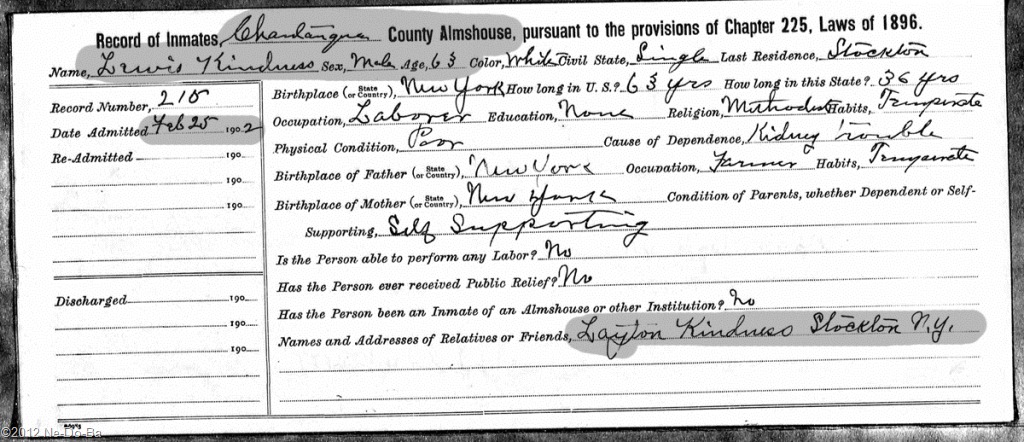 Record of Inmates, Chautauqua County Almshouse, pursuant to the provisions of Chapter 225, Laws of 1896.
Name, Lewis Kindness Sex, Male Age, 63 Color, White Civil State, Single Last Residence, Stockton
Record Number, 215
Date Admitted Feb 25 1902
Re-Admitted 190
190
190
Discharged 190
190
190
Birthplace (or State Country), New York How long in U. S.? 63 yrs How long in this State? 36 yrs
Occupation, Laborer Education, None Religion, Methodist Habits, Temperate
Physical Condition, Poor Cause of Dependence, Kidney trouble
Birthplace of Father (or State Country), New York Occupation, Farmer Habits, Temperate
Birthplace of Mother (or State Country), New York Condition of Parents, whether Dependent or Self-
Supporting, Self Supporting
Is the Person able to perform any Labor? No
Has the Person ever received Public Relief? No
Has the Person been an Inmate of an Almshouse or other Institution? No
Names and Addresses of Relatives or Friends, Layton Kindness Stockton N.Y.
©2012 Ne-Do-Ba